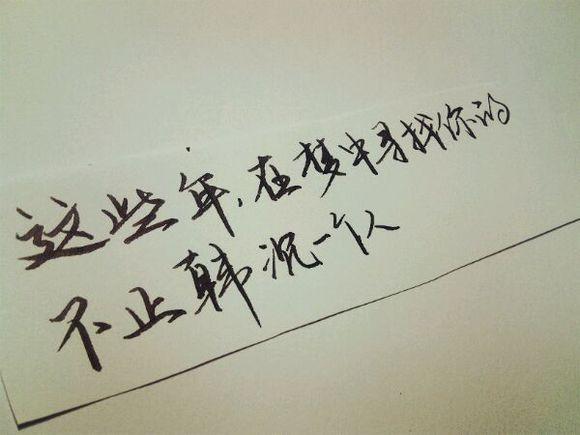 这些年，在梦中寻找你的
不止韩况一个人